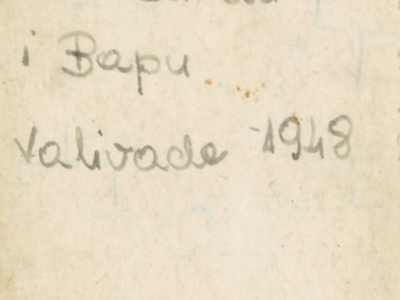 i Bapu
Valivade 1948